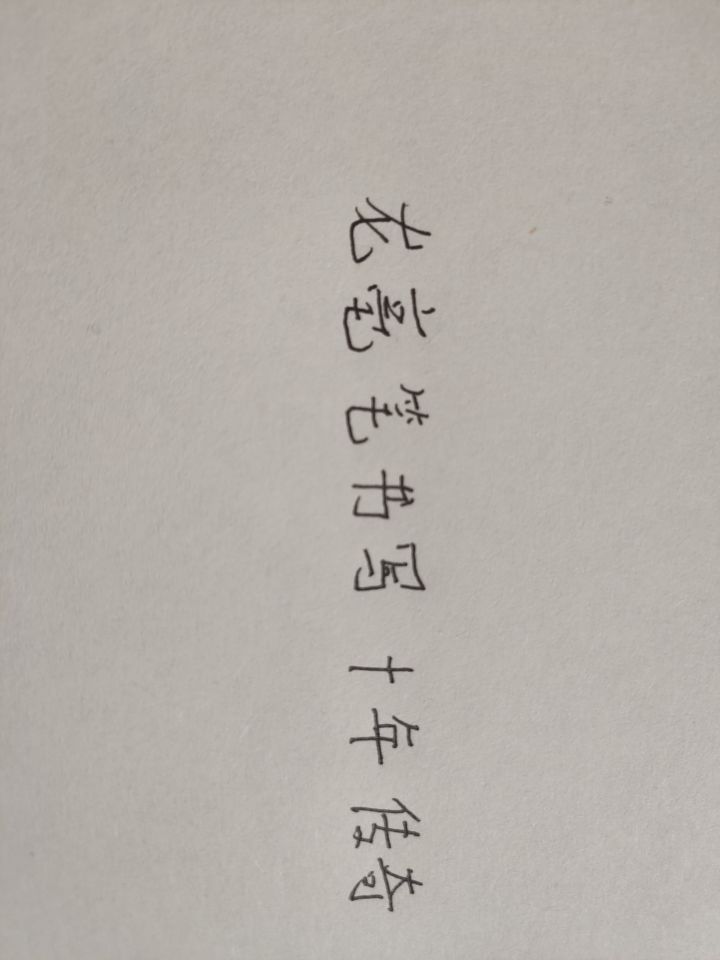 龙毫笔书写十年传奇